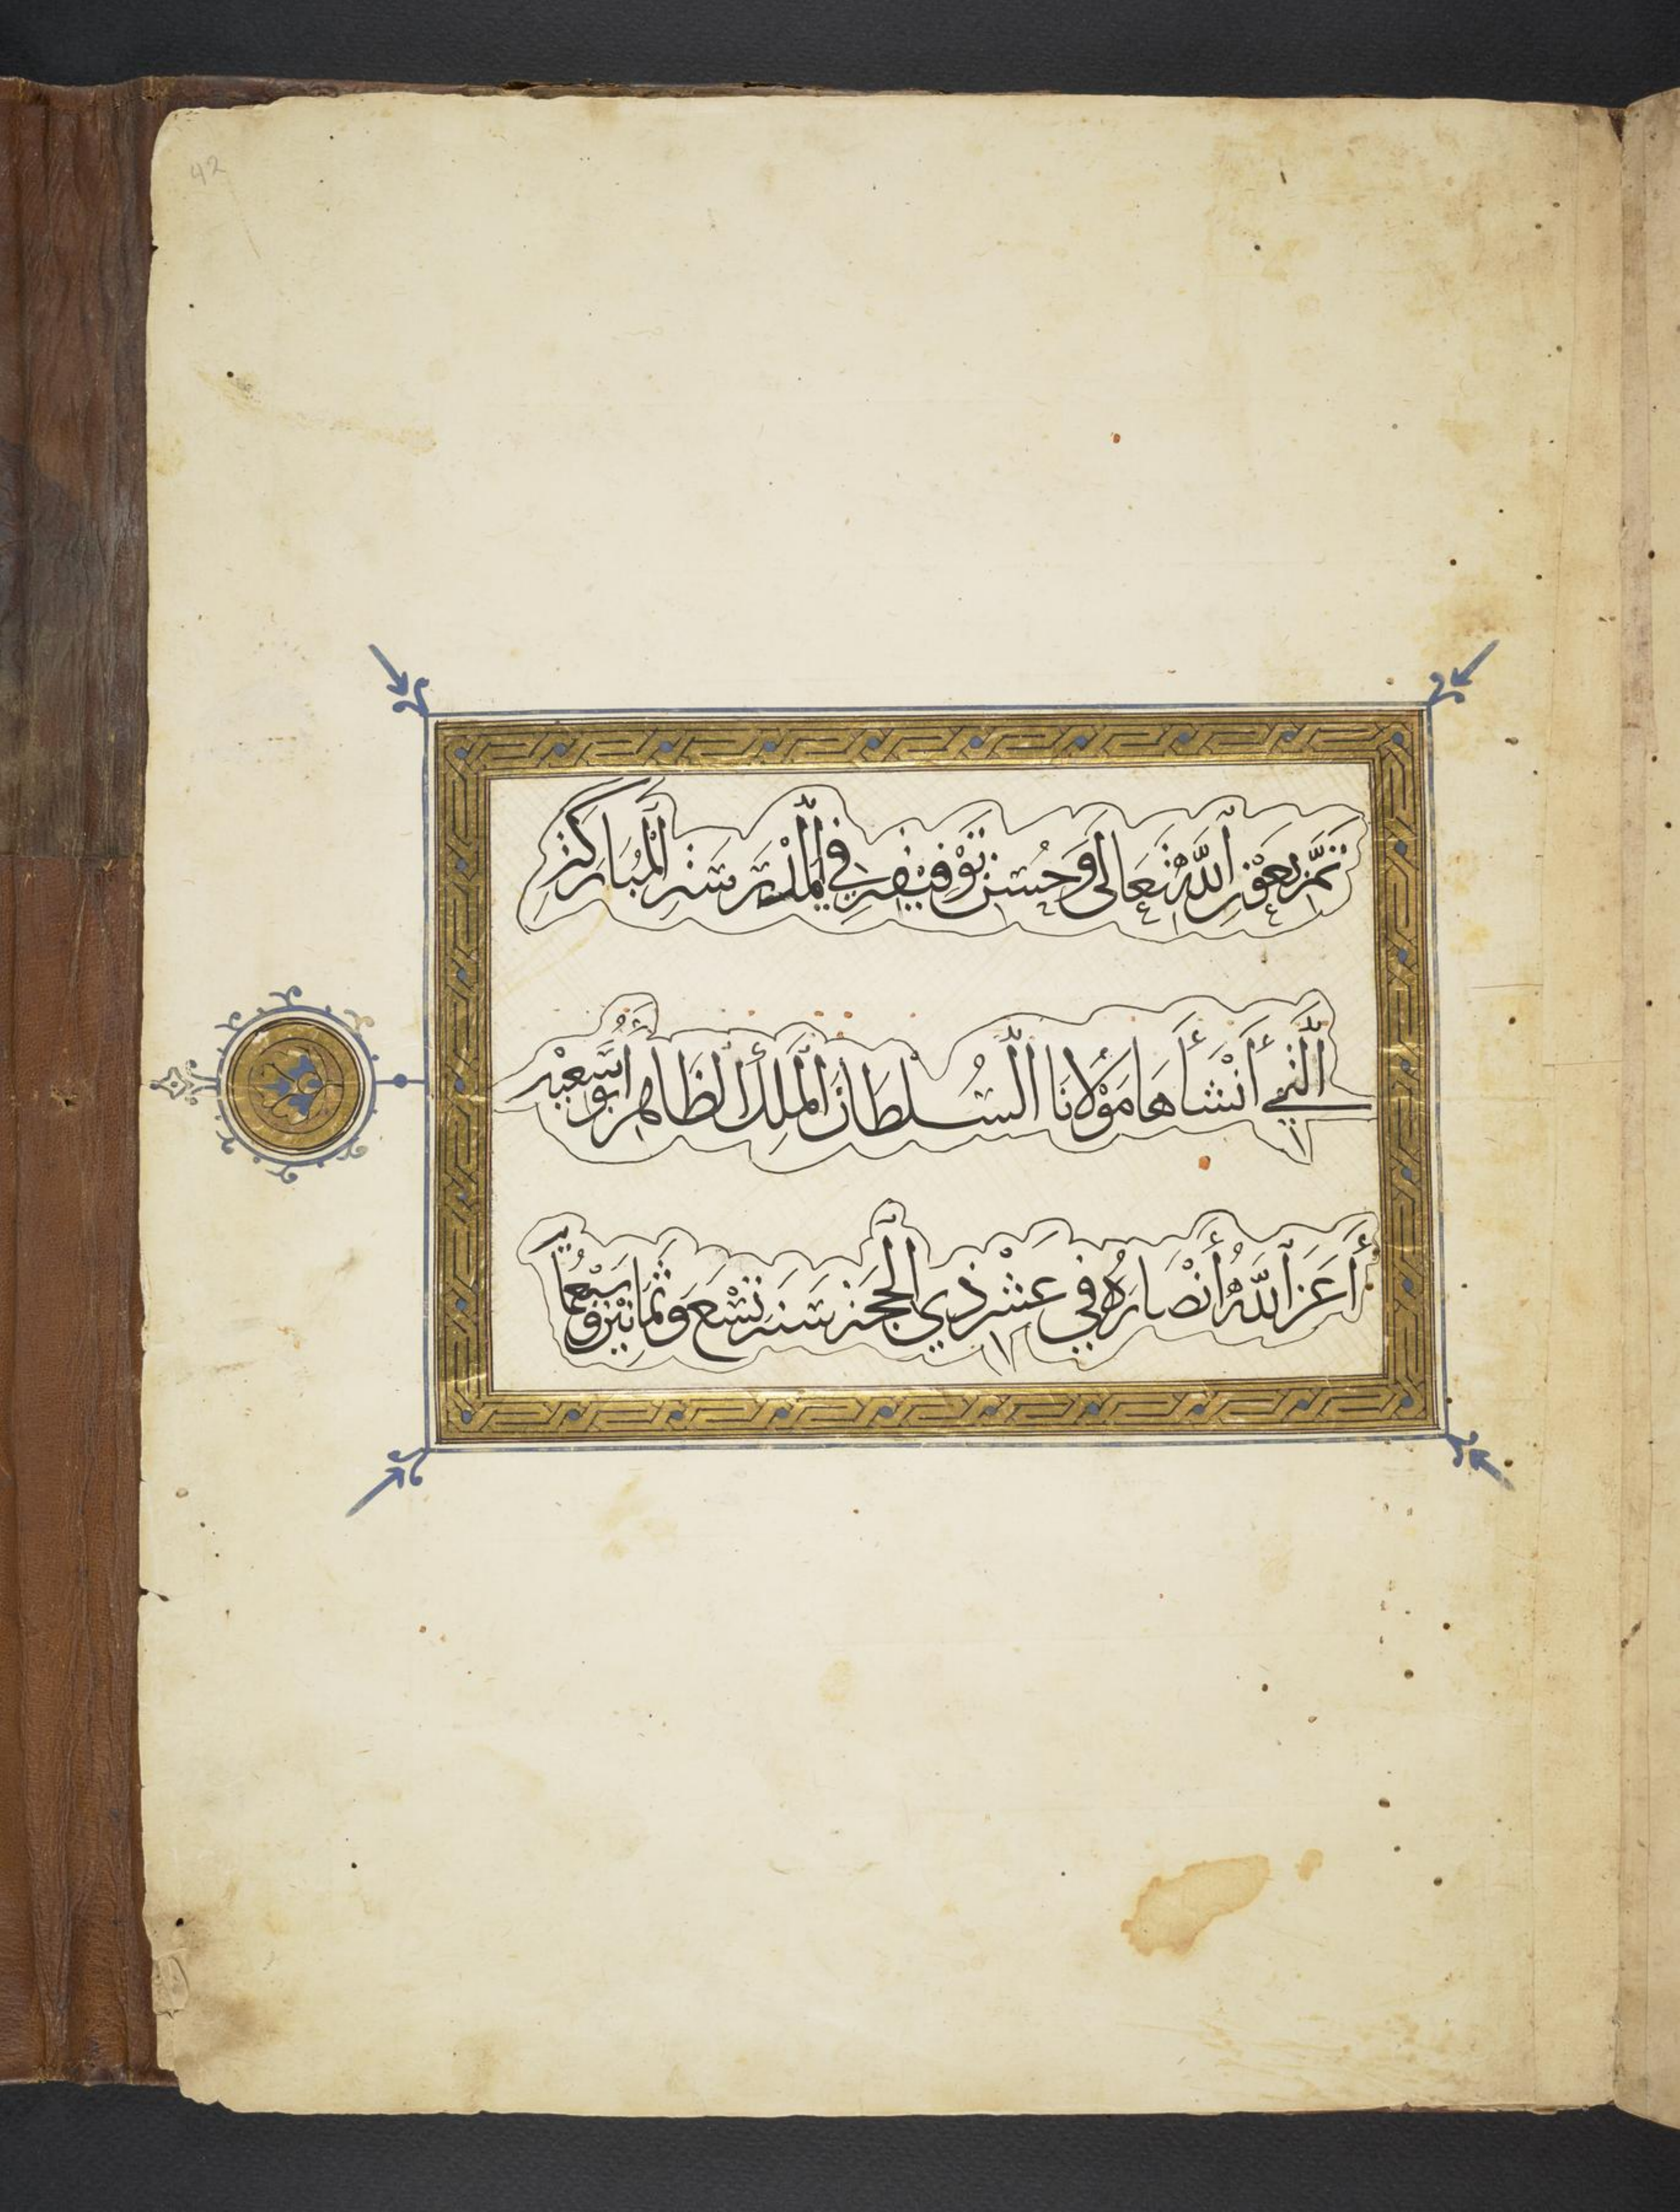 42
تَمَّ بِعَوْنِ اللّٰهِ تَعَالى وَحُسْنِ تَوْفِيقِهِ فِي الْمَدْرَسَةِ الْمُبَارَكَةِ
الَّتِي أَنْشَأَهَا مَوْلَانَا السُّلْطَانُ الْمَلِكُ الظَّاهِرُ أَبُو سَعِيْدٍ
أَعَزَّ اللّٰهُ أَنْصَارَهُ فِي عَشْرِ ذِي الْحِجَّةِ سَنَةَ تِسْعَ وَثَمَانِيْنَ وَسَبْعُمِائَة